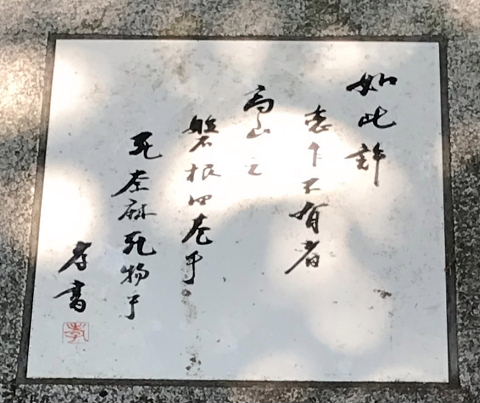 如此許
恋乍不有者
高山之
磐根四巻手
死奈麻死物乎
孝書
孝